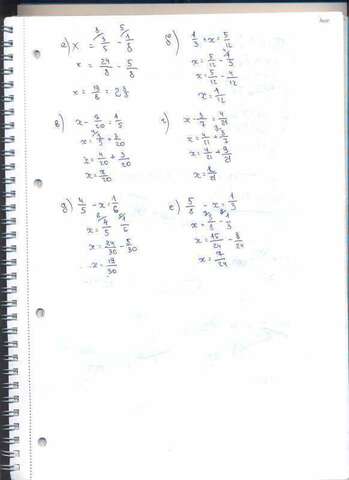 а) x = 3/5 - 1/8
x = 24/8 - 5/8
x = 19/8 = 2 3/8
б) 1/3 + x = 5/12
x = 5/12 - 1/3
x = 5/12 - 4/12
x = 1/12
в) x - 3/20 = 1/5
x = 1/5 + 3/20
x = 4/20 + 3/20
x = 7/20
г) x - 3/7 = 4/21
x = 4/21 + 3/7
x = 4/21 + 9/21
д) 4/5 - x = 1/6
x = 4/5 - 1/6
x = 24/30 - 5/30
x = 19/30
е) 5/8 - x = 1/3
x = 5/8 - 1/3
x = 15/24 - 8/24